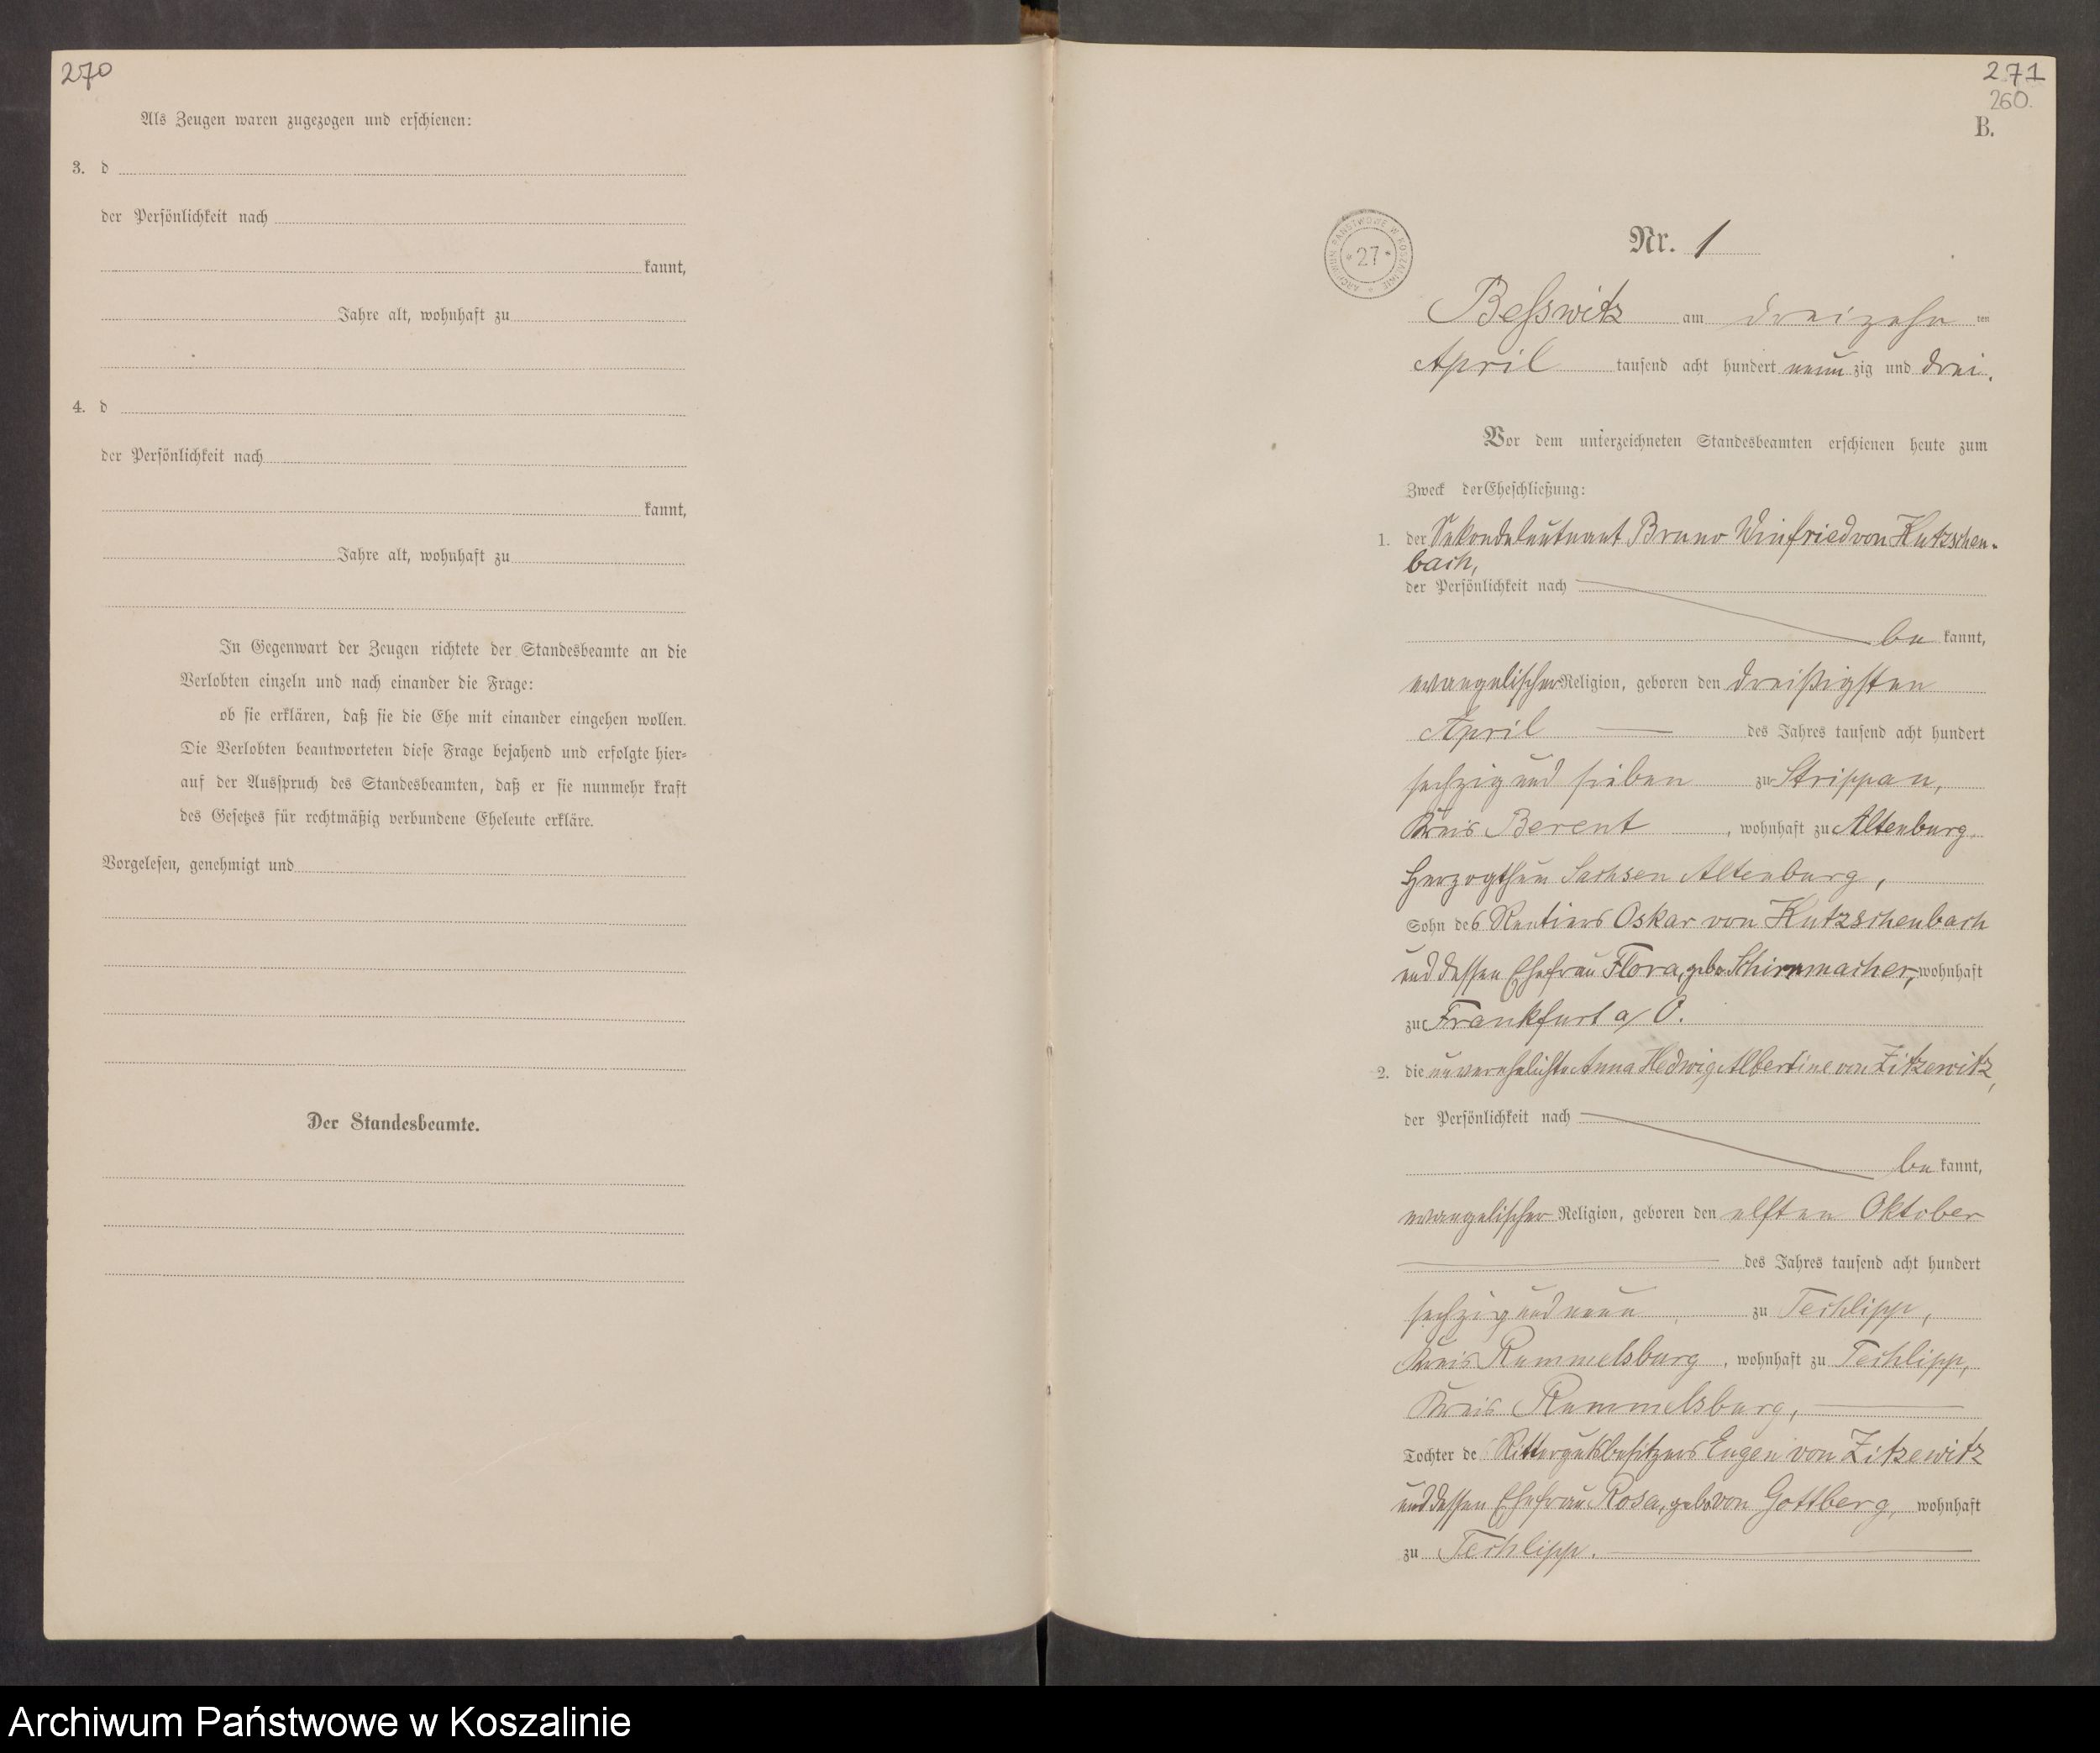 270
Als Zeugen waren zugezogen und erschienen:
3. d
der Persönlichkeit nach
kannt,
Jahre alt, wohnhaft zu
4. d
der Persönlichkeit nach
kannt,
Jahre alt, wohnhaft zu
In Gegenwart der Zeugen richtete der Standesbeamte an die
Verlobten einzeln und nach einander die Frage:
ob sie erklären, daß sie die Ehe mit einander eingehen wollen.
Die Verlobten beantworteten diese Frage bejahend und erfolgte hier=
auf der Ausspruch des Standesbeamten, daß er sie nunmehr kraft
des Gesetzes für rechtmäßig verbundene Eheleute erkläre.
Vorgelesen, genehmigt und
Der Standesbeamte.
271
260.
B.
ARCHIWUM PAŃSTWOWE W KOSZALINIE
* 27 *
Nr. 1
Besswitz am dreizehn ten
April tausend acht hundert neun zig und drei.
Vor dem unterzeichneten Standesbeamten erschienen heute zum
Zweck der Eheschließung:
1. der Sekondeleutnant Bruno Winfried von Kutzschen-
bach,
der Persönlichkeit nach
be kannt,
evangelischer Religion, geboren den dreißigsten
April des Jahres tausend acht hundert
sechzig und sieben zu Strippau,
Kreis Berent, wohnhaft zu Altenburg
Herzogthum Sachsen Altenburg,
Sohn des Rentiers Oskar von Kutzschenbach
und dessen Ehefrau Flora, geb. Schirrmacher, wohnhaft
zu Frankfurt a/O.
2. die unverehelichte Anna Hedwig Albertine von Zitzewitz,
der Persönlichkeit nach
be kannt,
evangelischer Religion, geboren den elften Oktober
des Jahres tausend acht hundert
sechzig und neun zu Techlipp,
Kreis Rummelsburg, wohnhaft zu Techlipp,
Kreis Rummelsburg,
Tochter des Rittergutsbesitzers Eugen von Zitzewitz
und dessen Ehefrau Rosa, geb. von Gottberg, wohnhaft
zu Techlipp.
Archiwum Państwowe w Koszalinie